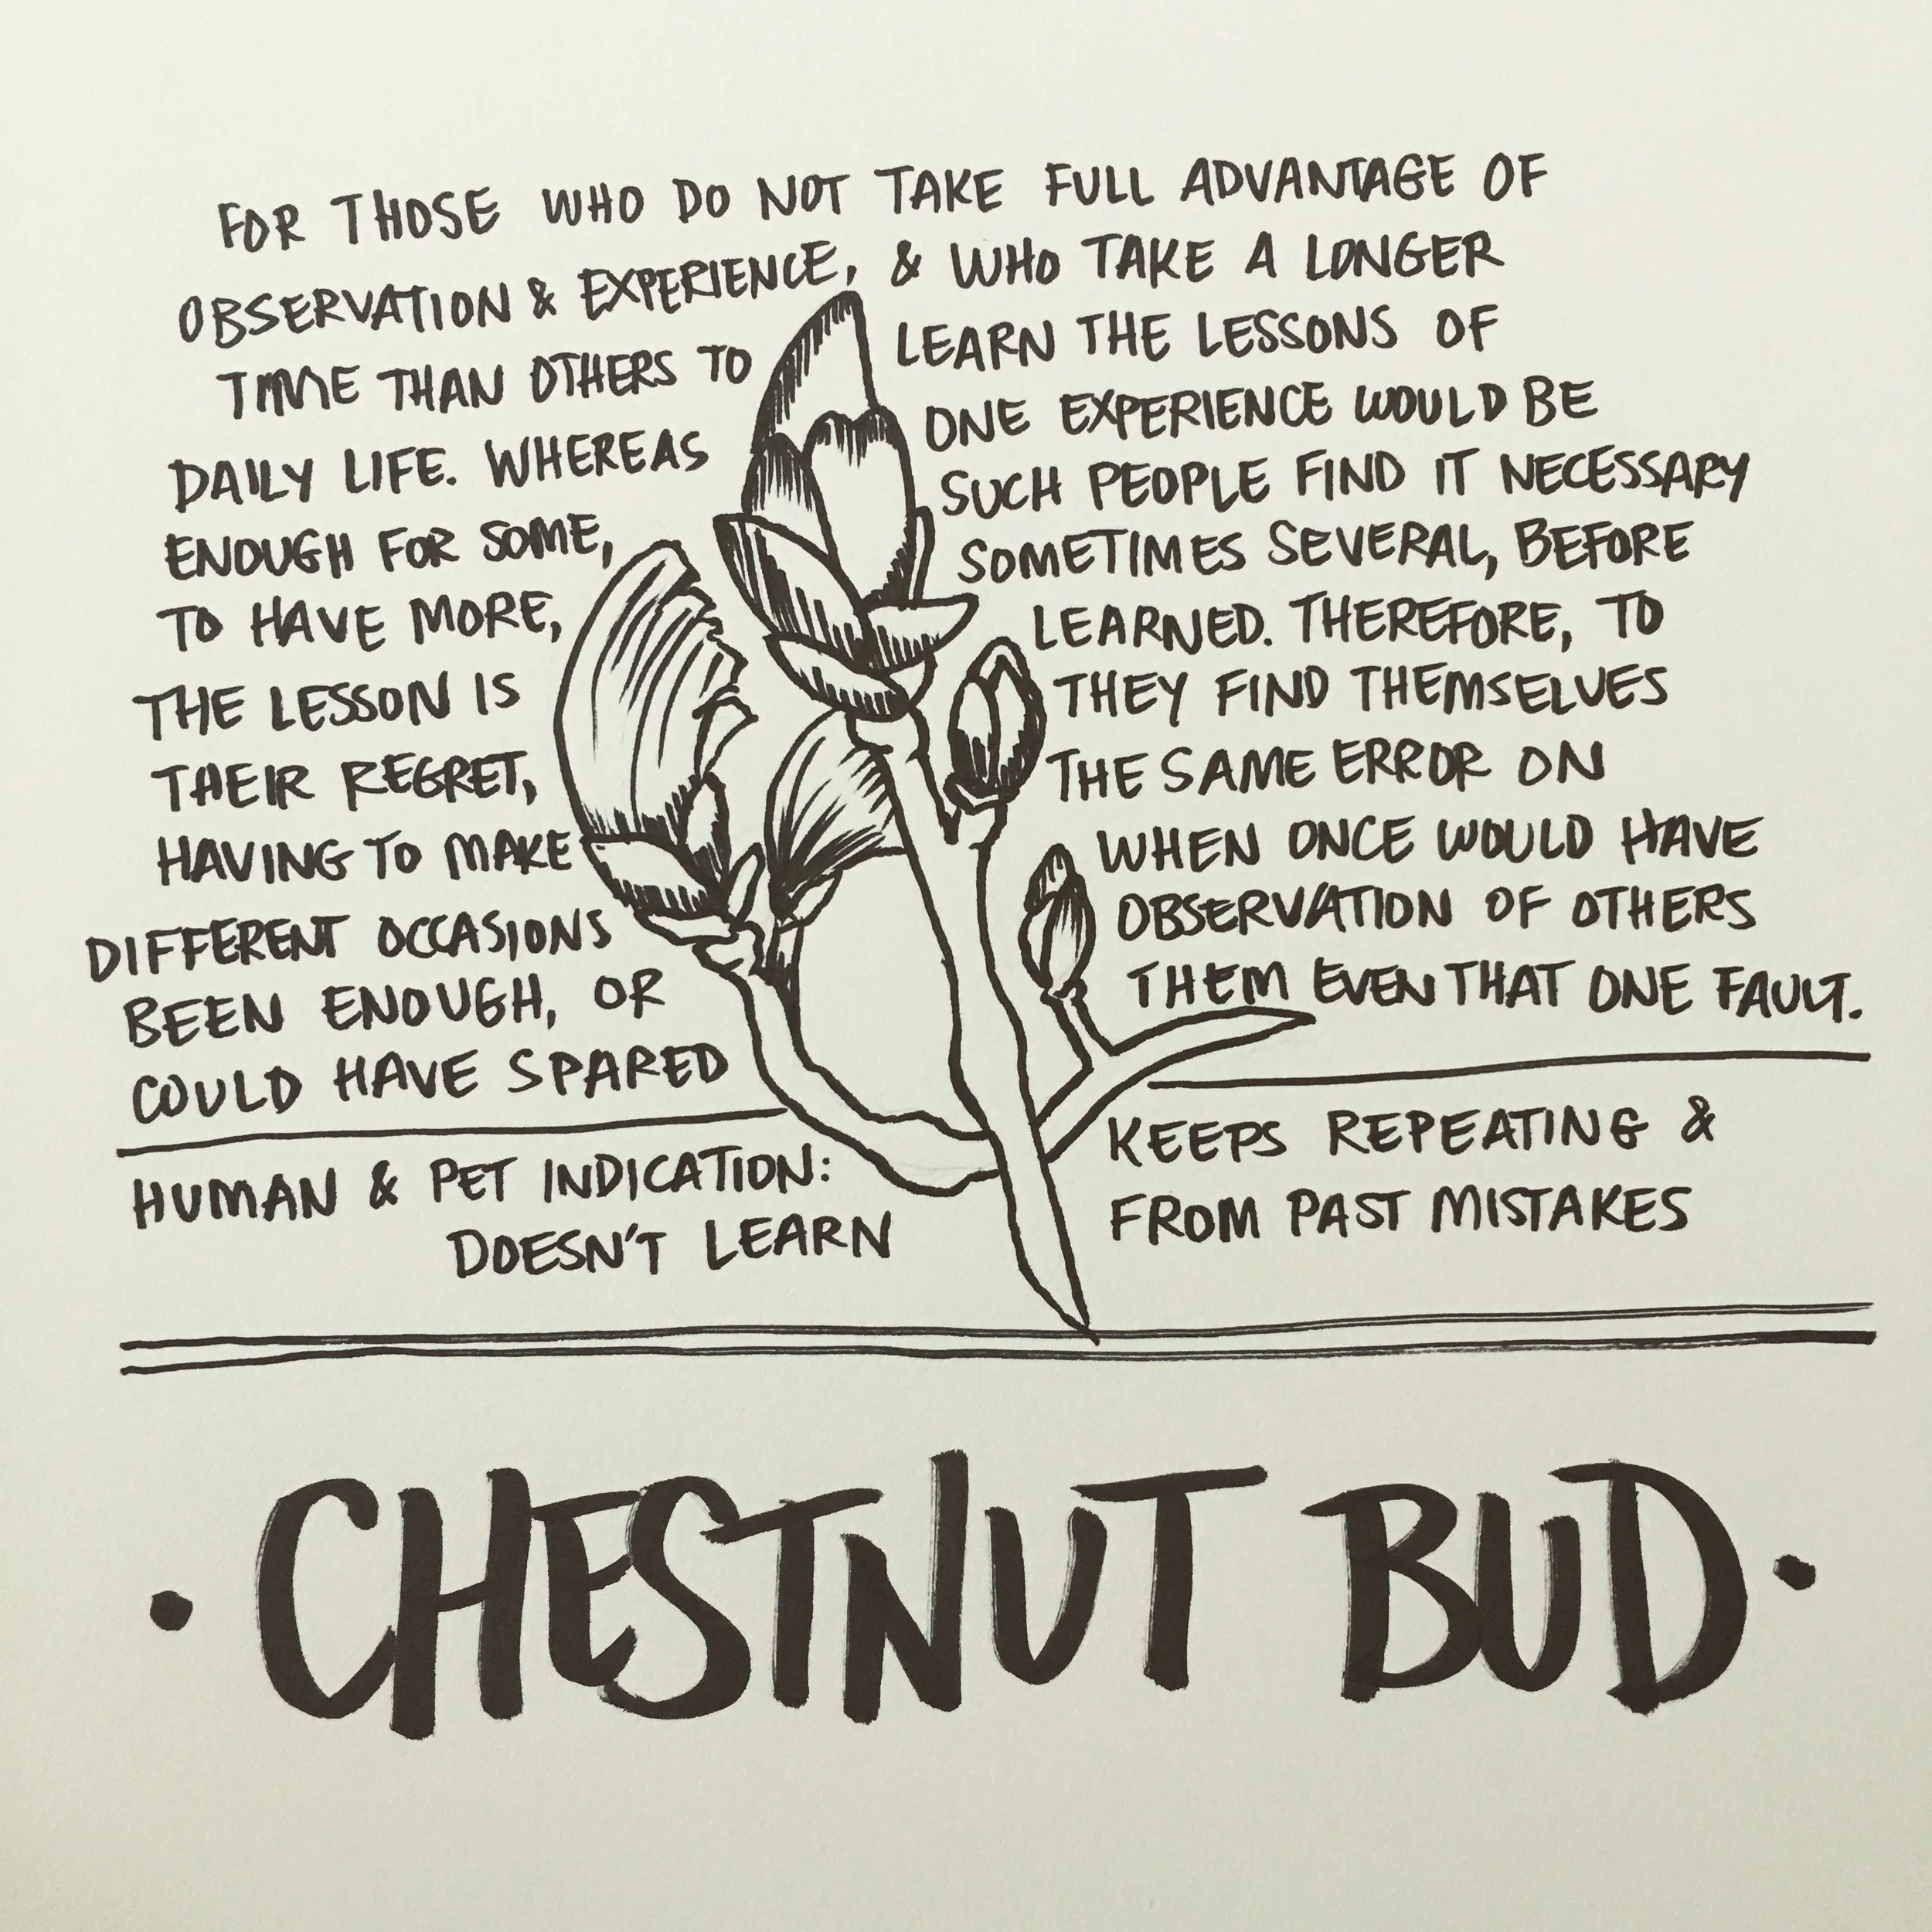 FOR THOSE WHO DO NOT TAKE FULL ADVANTAGE OF
OBSERVATION & EXPERIENCE, & WHO TAKE A LONGER
TIME THAN OTHERS TO LEARN THE LESSONS OF
DAILY LIFE. WHEREAS ONE EXPERIENCE WOULD BE
ENOUGH FOR SOME, SUCH PEOPLE FIND IT NECESSARY
TO HAVE MORE, SOMETIMES SEVERAL, BEFORE
THE LESSON IS LEARNED. THEREFORE, TO
THEIR REGRET, THEY FIND THEMSELVES
HAVING TO MAKE THE SAME ERROR ON
DIFFERENT OCCASIONS WHEN ONCE WOULD HAVE
BEEN ENOUGH, OR OBSERVATION OF OTHERS
COULD HAVE SPARED THEM EVEN THAT ONE FAULT.
HUMAN & PET INDICATION: KEEPS REPEATING &
DOESN'T LEARN FROM PAST MISTAKES
• CHESTNUT BUD •